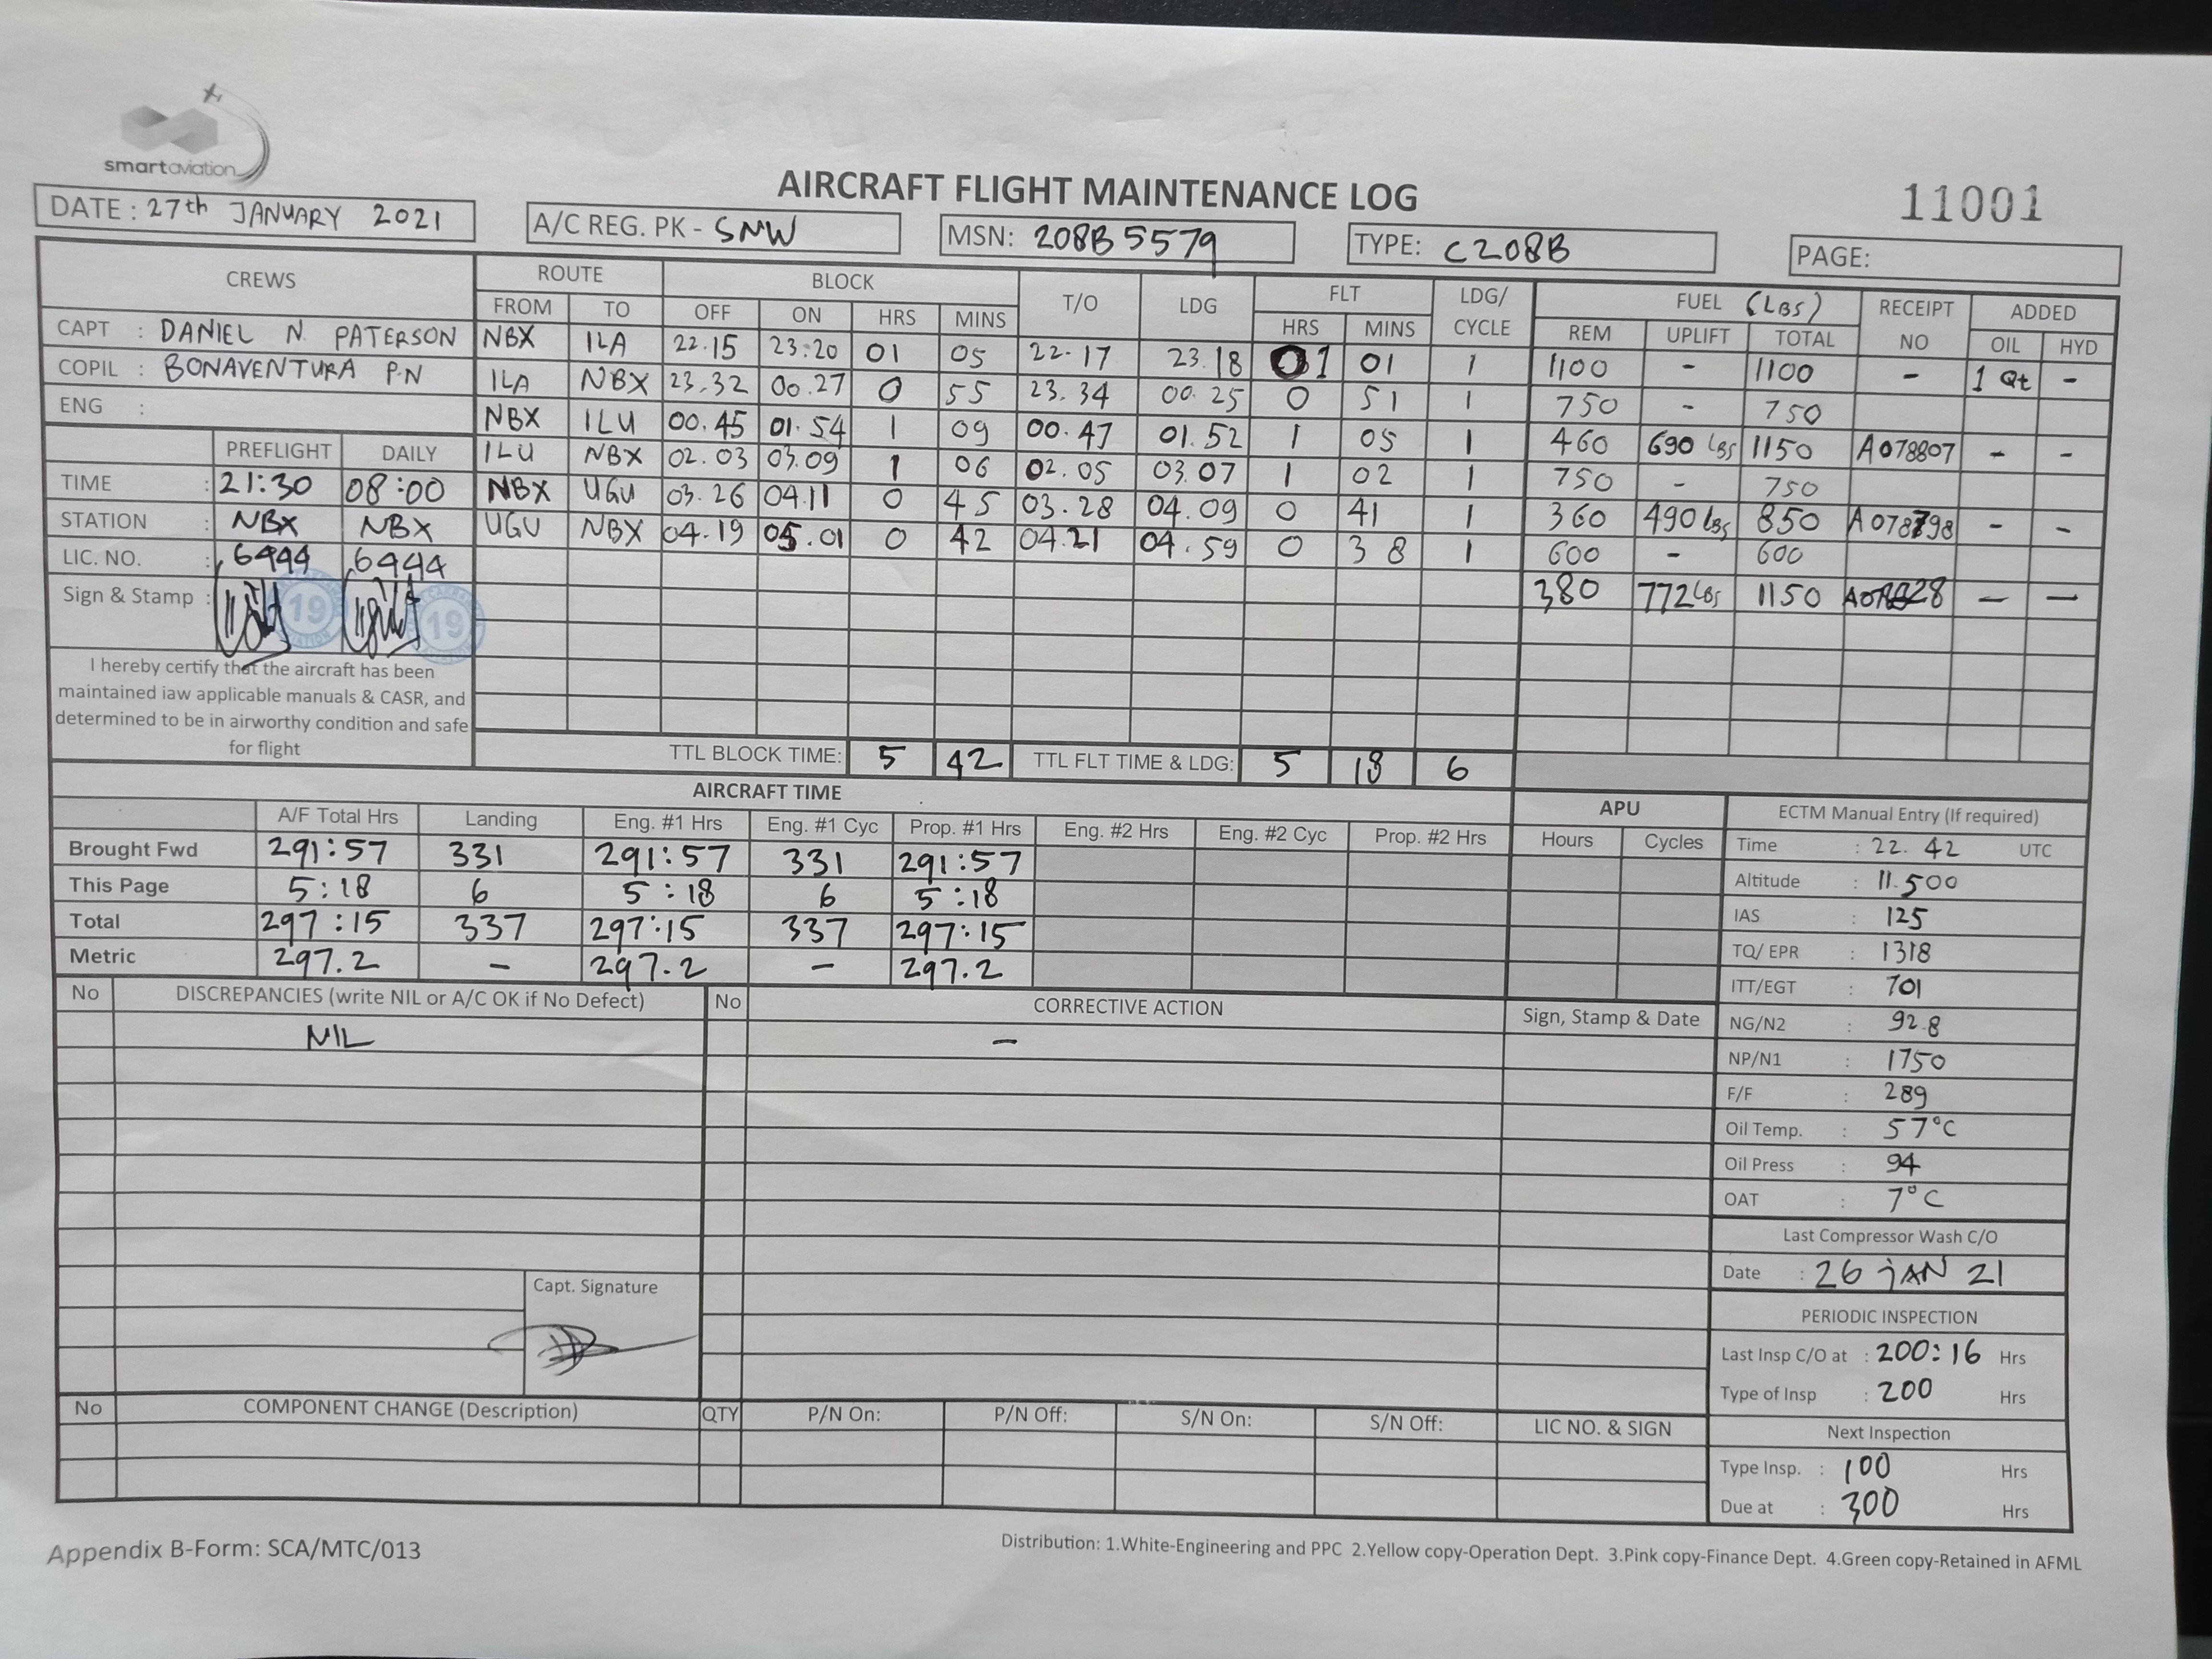 smartaviation
AIRCRAFT FLIGHT MAINTENANCE LOG
11001
DATE : 27th JANUARY 2021
A/C REG. PK - SNW
MSN: 208B5579
TYPE: C208B
PAGE:
CREWS
CAPT : DANIEL N. PATERSON
COPIL : BONAVENTURA P.N
ENG :
PREFLIGHT DAILY
TIME : 21:30 08:00
STATION : NBX NBX
LIC. NO. : 6444 6444
Sign & Stamp :
19 19
I hereby certify that the aircraft has been
maintained iaw applicable manuals & CASR, and
determined to be in airworthy condition and safe
for flight
ROUTE BLOCK T/O LDG FLT LDG/ CYCLE FUEL (LBS) RECEIPT NO ADDED
FROM TO OFF ON HRS MINS HRS MINS REM UPLIFT TOTAL OIL HYD
NBX ILA 22.15 23:20 01 05 22.17 23.18 01 01 1 1100 - 1100 - 1 Qt -
ILA NBX 23.32 00.27 0 55 23.34 00.25 0 51 1 750 - 750
NBX ILU 00.45 01.54 1 09 00.47 01.52 1 05 1 460 690 lbs 1150 A078807 - -
ILU NBX 02.03 03.09 1 06 02.05 03.07 1 02 1 750 - 750
NBX UGU 03.26 04.11 0 45 03.28 04.09 0 41 1 360 490 lbs 850 A078798 - -
UGU NBX 04.19 05.01 0 42 04.21 04.59 0 38 1 600 - 600
380 772 lbs 1150 - -
TTL BLOCK TIME: 5 42 TTL FLT TIME & LDG: 5 18 6
AIRCRAFT TIME
A/F Total Hrs Landing Eng. #1 Hrs Eng. #1 Cyc Prop. #1 Hrs Eng. #2 Hrs Eng. #2 Cyc Prop. #2 Hrs
Brought Fwd 291:57 331 291:57 331 291:57
This Page 5:18 6 5:18 6 5:18
Total 297:15 337 297:15 337 297:15
Metric 297.2 - 297.2 - 297.2
APU
Hours Cycles
ECTM Manual Entry (If required)
Time : 22.42 UTC
Altitude : 11.500
IAS : 125
TQ/ EPR : 1318
ITT/EGT : 701
NG/N2 : 92.8
NP/N1 : 1750
F/F : 289
Oil Temp. : 57°C
Oil Press : 94
OAT : 7°C
Last Compressor Wash C/O
Date : 26 jAN 21
PERIODIC INSPECTION
Last Insp C/O at : 200:16 Hrs
Type of Insp : 200 Hrs
Next Inspection
Type Insp. : 100 Hrs
Due at : 300 Hrs
No DISCREPANCIES (write NIL or A/C OK if No Defect) No CORRECTIVE ACTION Sign, Stamp & Date
NIL -
Capt. Signature
No COMPONENT CHANGE (Description) QTY P/N On: P/N Off: S/N On: S/N Off: LIC NO. & SIGN
Appendix B-Form: SCA/MTC/013
Distribution: 1.White-Engineering and PPC 2.Yellow copy-Operation Dept. 3.Pink copy-Finance Dept. 4.Green copy-Retained in AFML